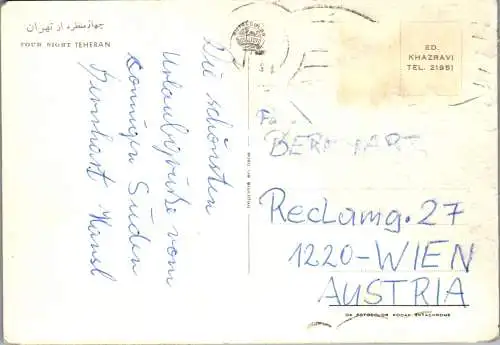 چهار منظره از تهران
FOUR SIGHT TEHERAN
Die schönsten
Urlaubsgrüße vom
sonnigen Süden
Bernhart Hansl
ED.
KHAZRAVI
TEL. 21951
Reclamg. 27
1220-WIEN
AUSTRIA